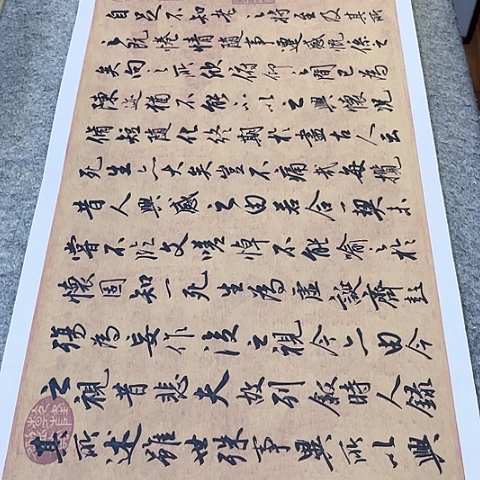 自足不知老之將至及其所
之既惓情隨事遷感慨係之
矣向之所欣俯仰之間已為
陳迹猶不能不以之興懷況
脩短隨化終期於盡古人云
死生亦大矣豈不痛哉每攬
昔人興感之由若合一契未
嘗不臨文嗟悼不能喻之於
懷固知一死生為虛誕齊彭
殤為妄作後之視今亦由今
之視昔悲夫故列敘時人錄
其所述雖世殊事異所以興